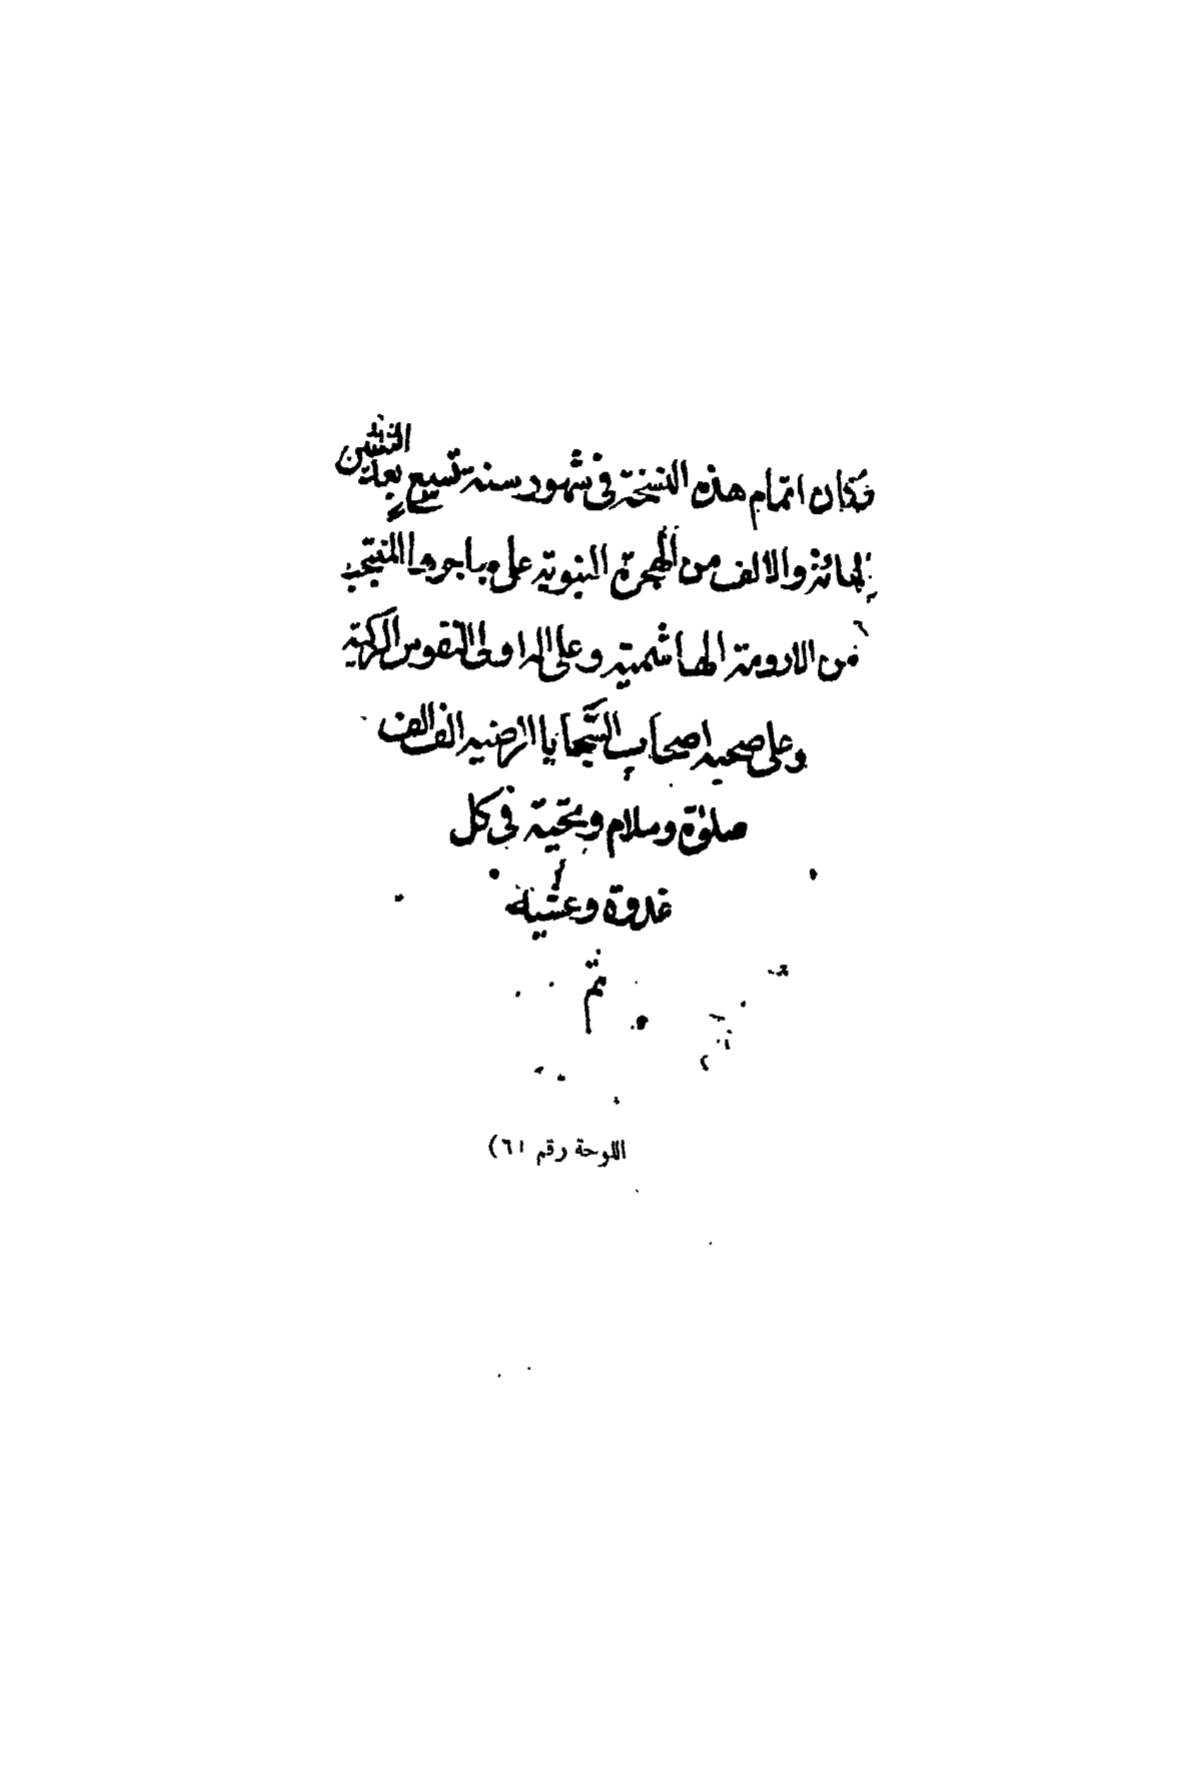 وكان اتمام هذه النسخة في شهور سنة تسع بعد
الهائة والالف من الهجرة النبوية على مهاجرها المنتجب
من الارومة الهاشمية وعلى اله اولى النفوس الكريمة
وعلى صحبه اصحاب السَّجايا الرضيه الف الف
صلوة وسلام وتحية في كل
غدوة وعشية
تم
اللوحة رقم ٦١)